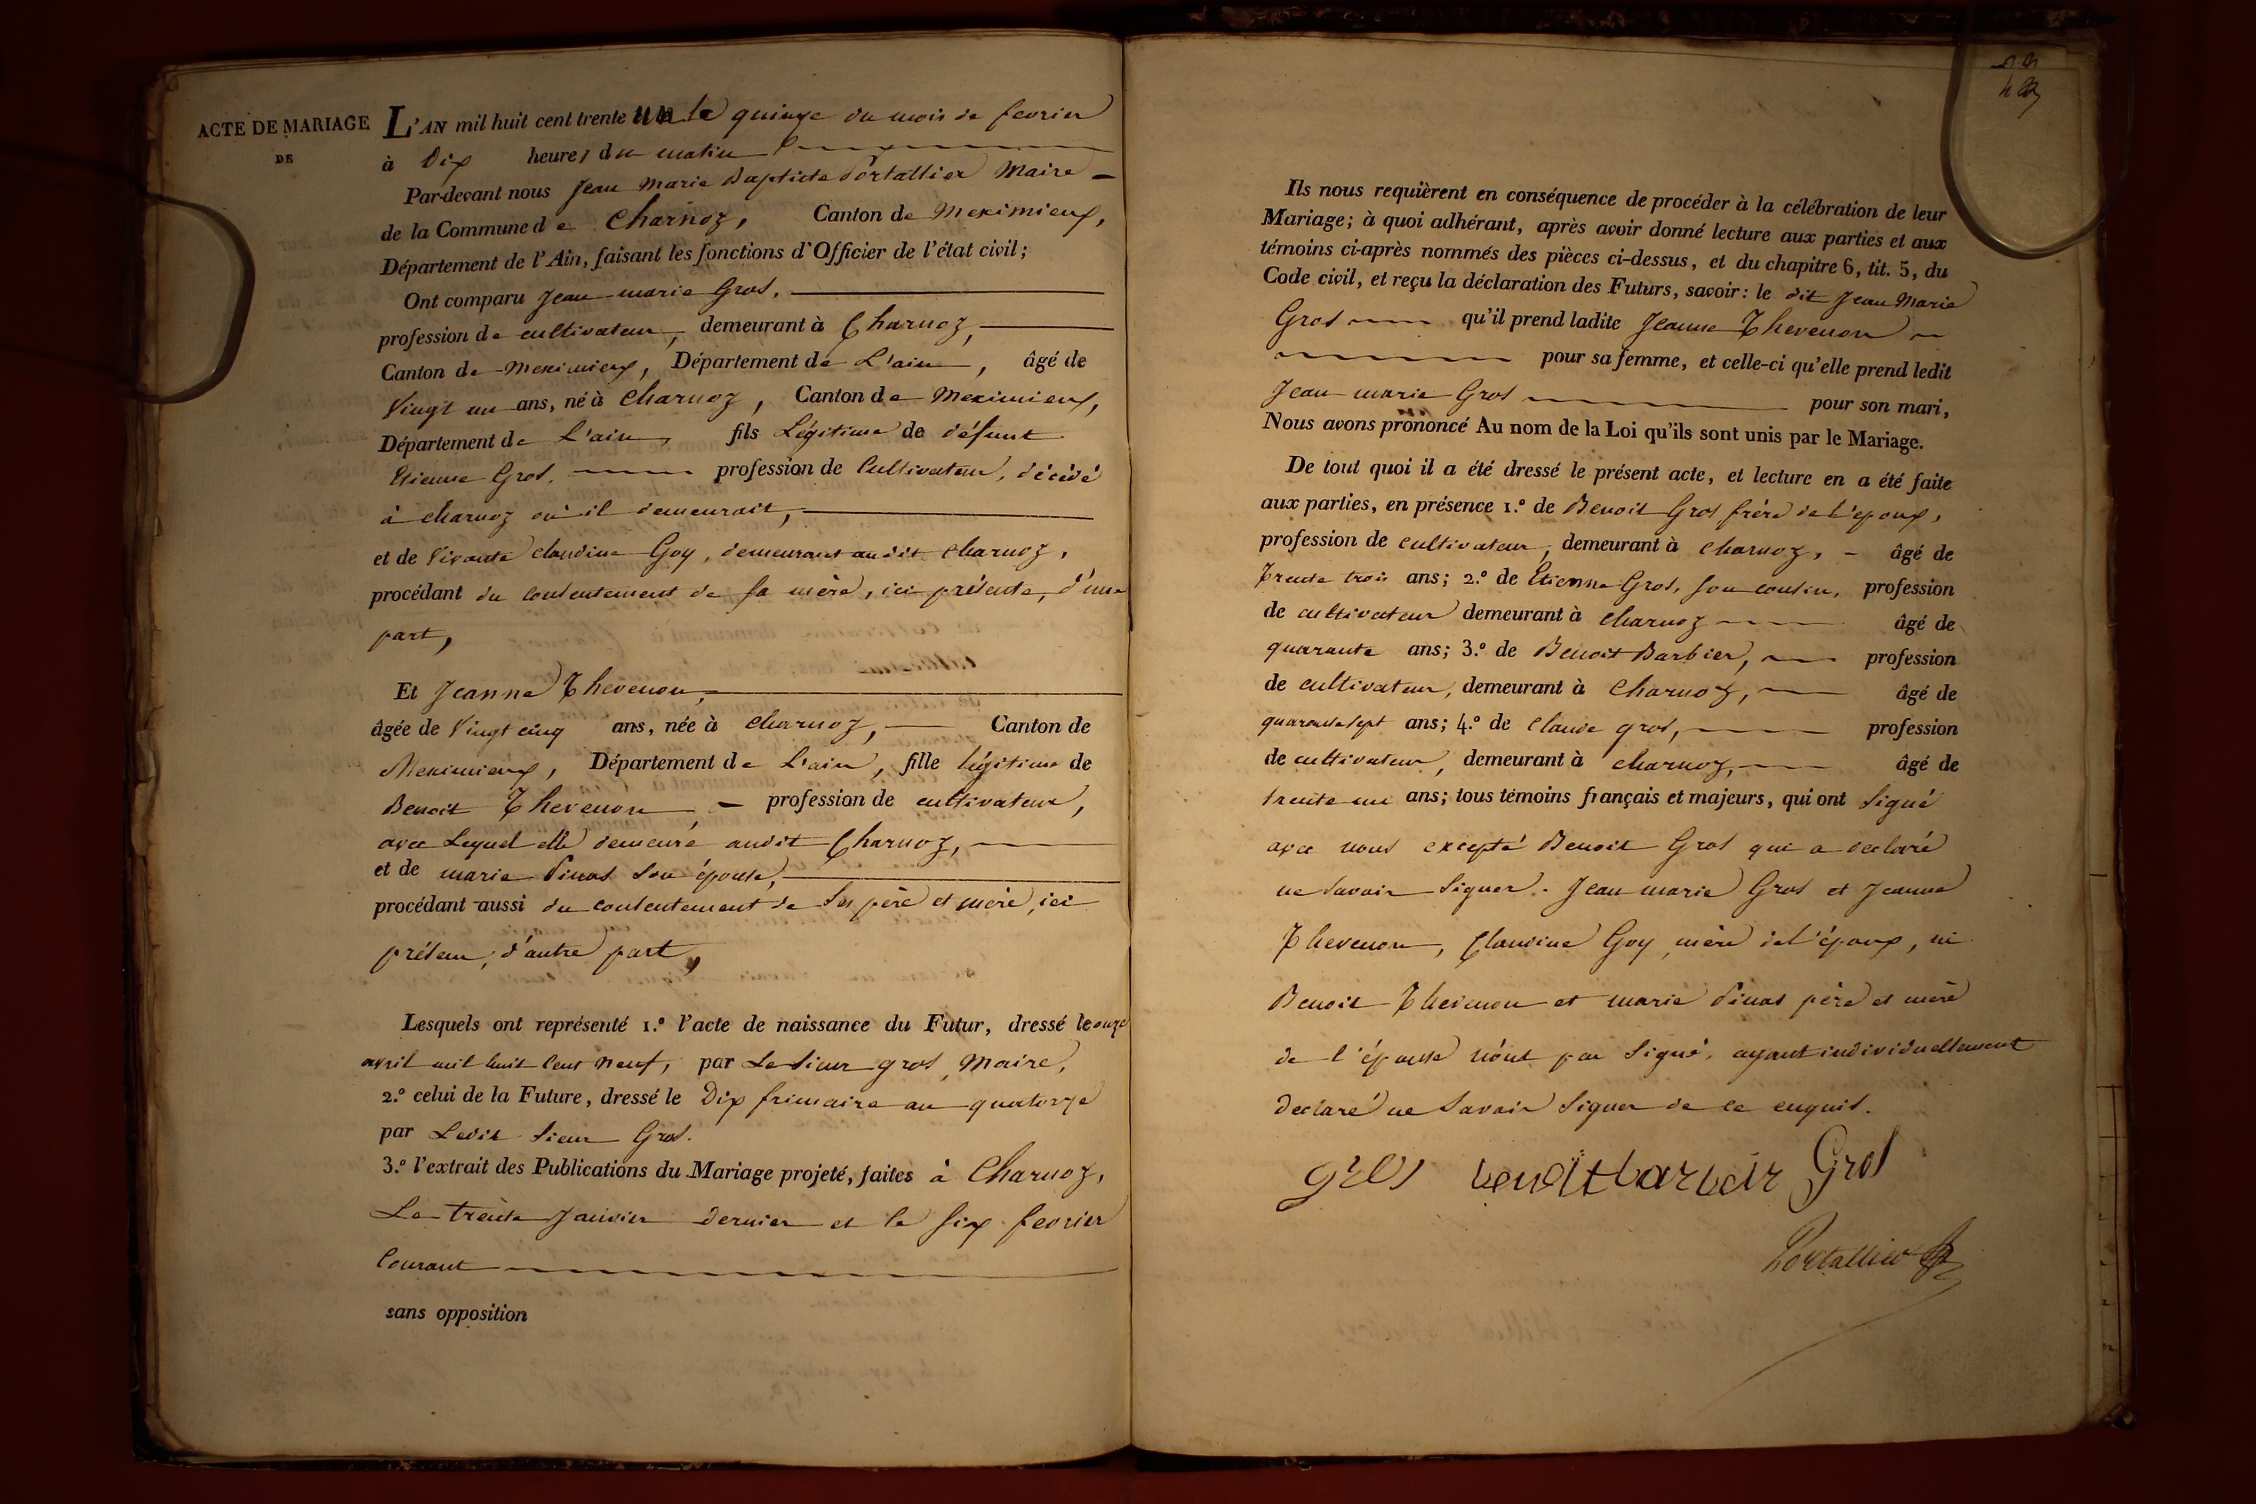 ACTE DE MARIAGE
DE
L'AN mil huit cent trente un le quinze du mois de fevrier
à Dix heures du matin
Par-devant nous Jean Marie Baptiste Portallier Maire
de la Commune de Charnoz, Canton de Meximieux,
Département de l'Ain, faisant les fonctions d'Officier de l'état civil;
Ont comparu Jean marie Gros,
profession de cultivateur, demeurant à Charnoz,
Canton de Meximieux, Département de L'ain, âgé de
Vingt un ans, né à Charnoz, Canton de Meximieux,
Département de L'ain, fils Légitime de défunt
Etienne Gros, profession de Cultivateur, décédé
à charnoz où il demeurait,
et de Vivante claudine Goy, demeurant audit charnoz,
procédant du consentement de sa mère, ici présente, d'une
part,
Et Jeanne Thevenon,
âgée de Vingt cinq ans, née à charnoz, Canton de
Meximieux, Département de L'ain, fille légitime de
Benoit Thevenon, profession de cultivateur,
avec Lequel elle demeure audit Charnoz,
et de marie Pinas son épouse,
procédant aussi du consentement de Ses père et mère, ici
présens, d'autre part,
Lesquels ont représenté 1.º l'acte de naissance du Futur, dressé le onze
avril mil huit cent neuf, par Le sieur gros, Maire,
2.º celui de la Future, dressé le Dix frimaire an quatorze
par Ledit Sieur Gros.
3.º l'extrait des Publications du Mariage projeté, faites à Charnoz,
Le trente Janvier dernier et le six fevrier
Courant
sans opposition
Ils nous requièrent en conséquence de procéder à la célébration de leur
Mariage; à quoi adhérant, après avoir donné lecture aux parties et aux
témoins ci-après nommés des pièces ci-dessus, et du chapitre 6, tit. 5, du
Code civil, et reçu la déclaration des Futurs, savoir: le dit Jean Marie
Gros qu'il prend ladite Jeanne Thevenon
pour sa femme, et celle-ci qu'elle prend ledit
Jean marie Gros pour son mari,
Nous avons prononcé Au nom de la Loi qu'ils sont unis par le Mariage.
De tout quoi il a été dressé le présent acte, et lecture en a été faite
aux parties, en présence 1.º de Benoit Gros frère de l'epoux,
profession de cultivateur, demeurant à charnoz, âgé de
Trente trois ans; 2.º de Etienne Gros, son cousin, profession
de cultivateur demeurant à charnoz âgé de
quarante ans; 3.º de Benoit Barbier, profession
de cultivateur, demeurant à Charnoz, âgé de
quarante sept ans; 4.º de claude gros, profession
de cultivateur, demeurant à charnoz, âgé de
trente un ans; tous témoins français et majeurs, qui ont Signé
avec nous excepté Benoit Gros qui a declaré
ne Savoir Signer. Jean marie Gros et Jeanne
Thevenon, Claudine Goy, mère de l'époux, ni
Benoit Thevenon et marie Pinas père et mère
de l'épouse n'ont pas Signé, ayant individuellement
declaré ne Savoir Signer de ce enquis.
gros benoit barbeir Gros
Portallier